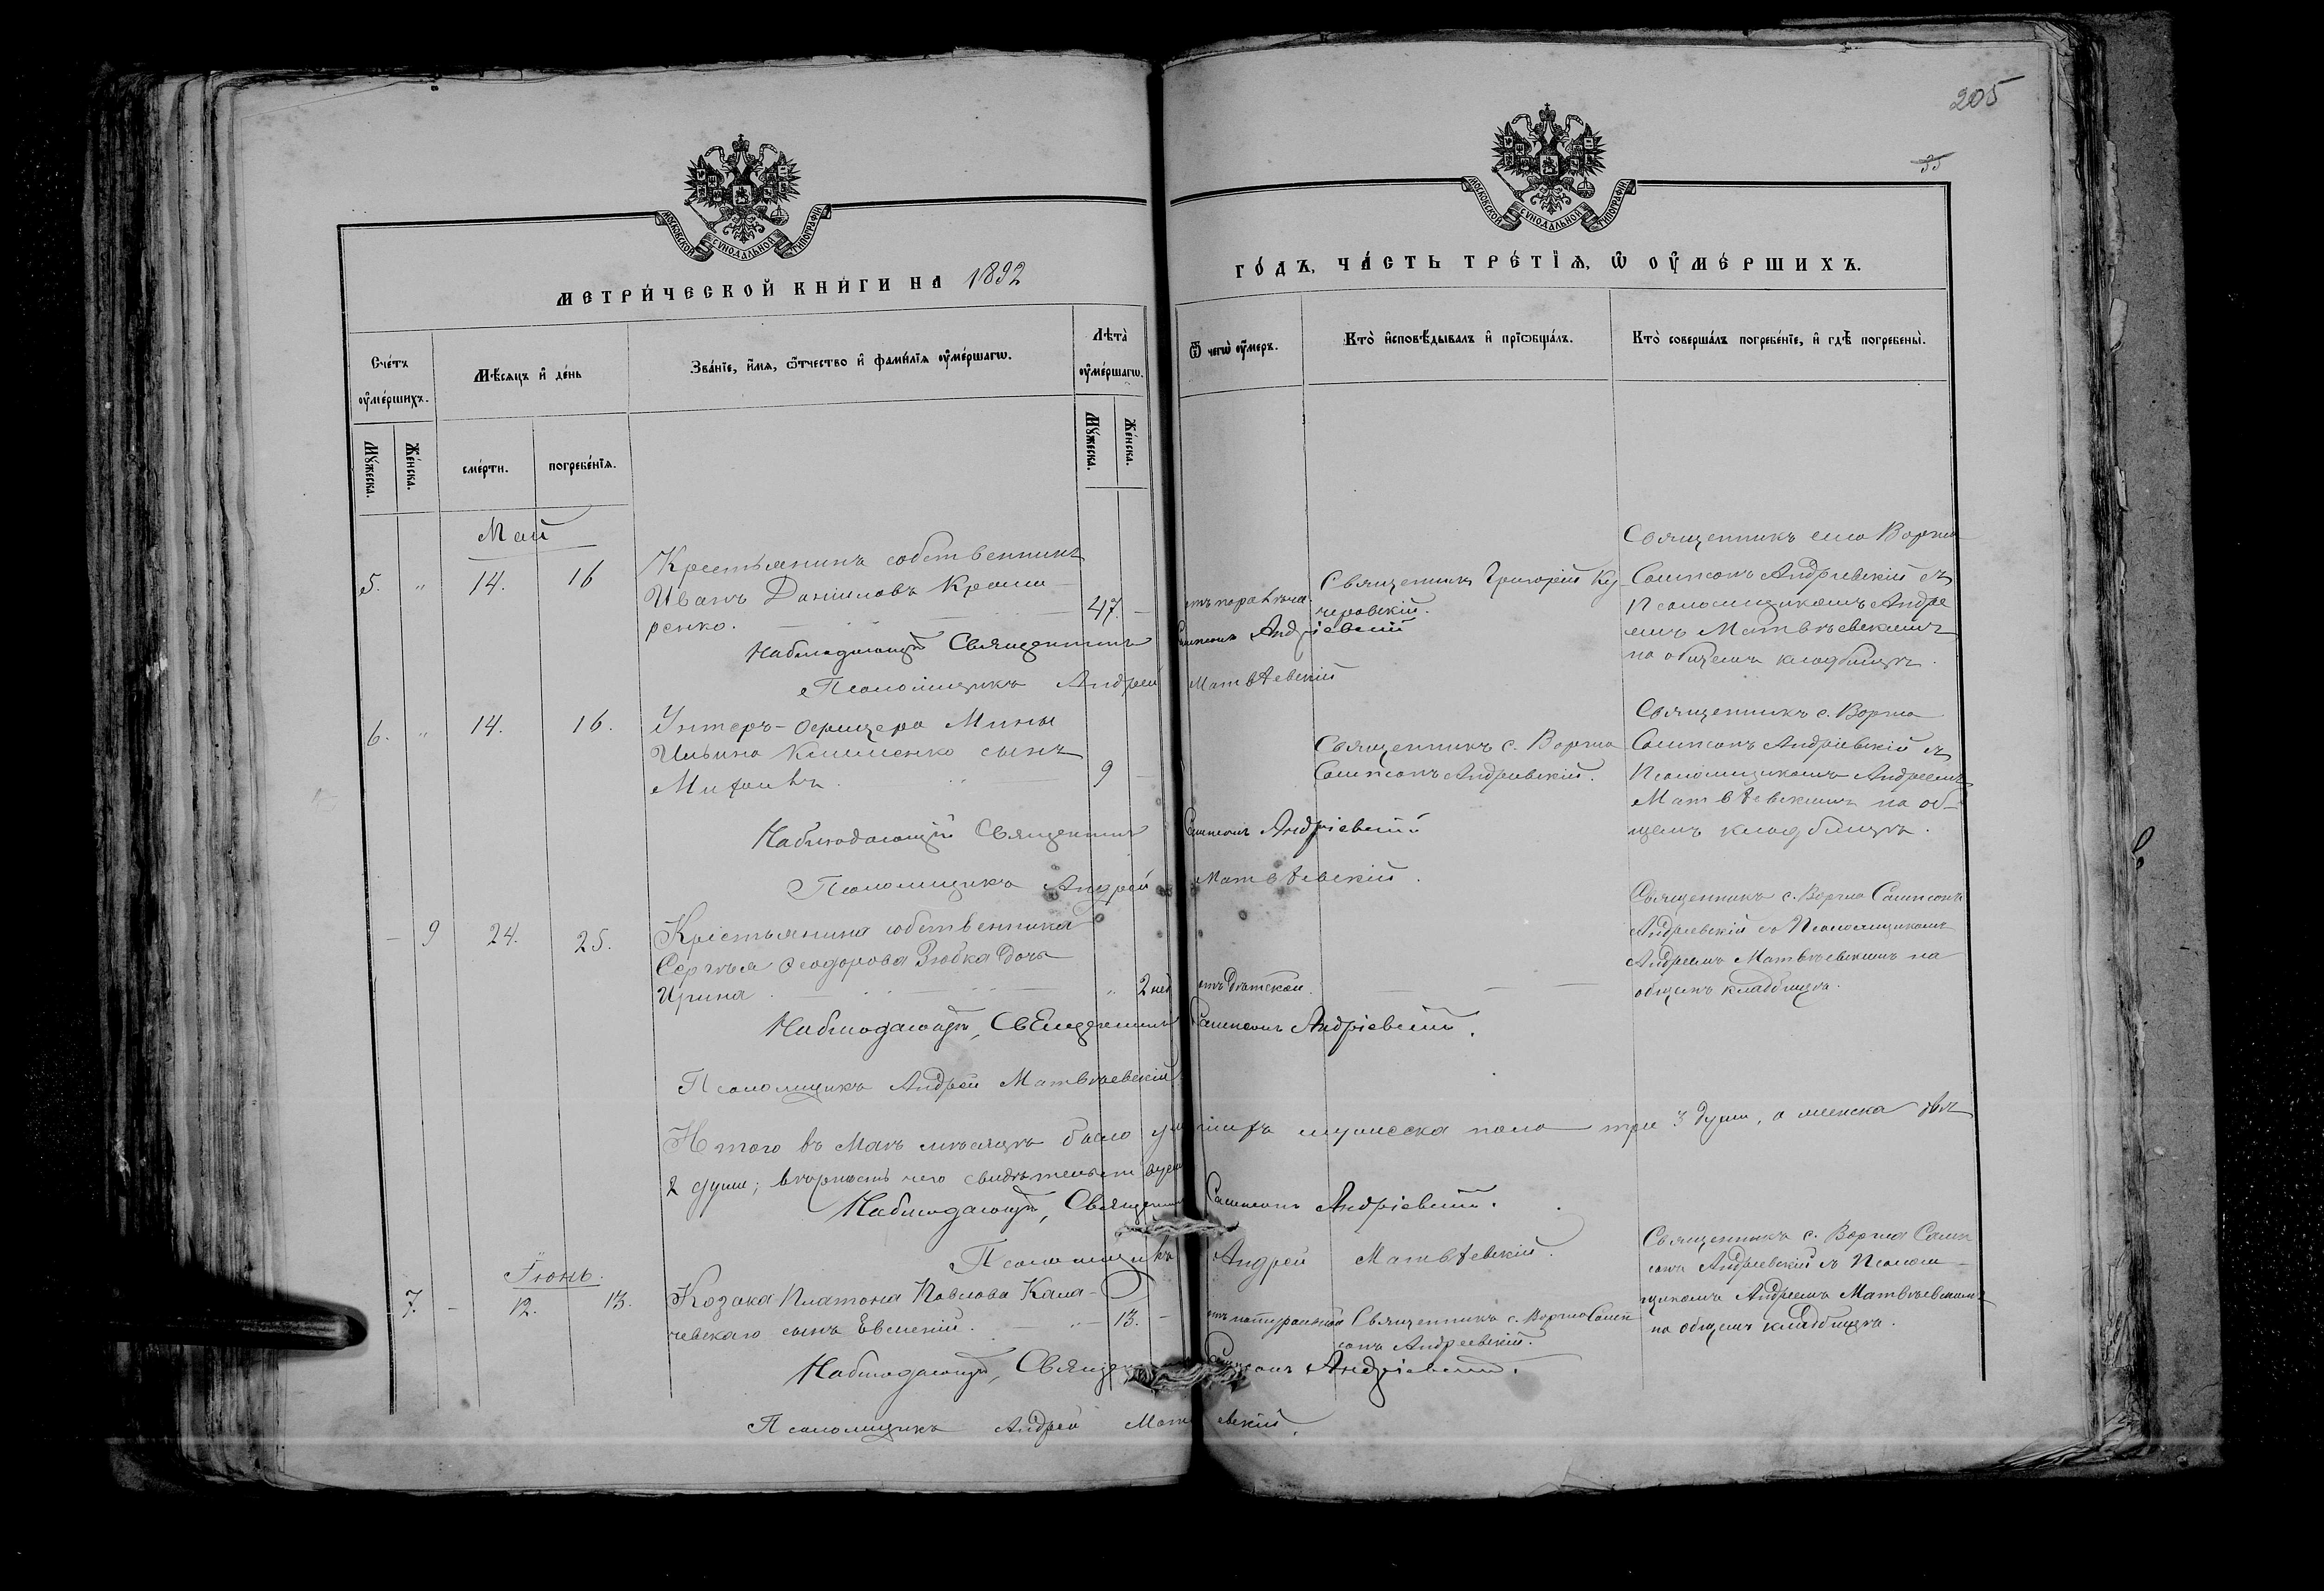 205
35
МОСКОВСКОЙ СѴНОДАЛЬНОЙ ТИПОГРАФІИ
МОСКОВСКОЙ СѴНОДАЛЬНОЙ ТИПОГРАФІИ
МЕТРИ́ЧЕСКОЙ КНИ́ГИ НА 1892
ГО́ДЪ, ЧА́СТЬ ТРЕ́ТЇѦ, Ѡ ОУ҆МЕ́РШИХЪ.
Сче́тъ оу҆ме́ршихъ.
Мѣ́сяцъ и҆ де́нь
Зва́нїе, и҆́мѧ, ѻ҆́тчество и҆ фами́лїѧ оу҆ме́ршагѡ.
Лѣ́та оу҆ме́ршагѡ.
Ѿ чегѡ̀ оу҆́меръ.
Кто̀ и҆сповѣ́дывалъ и҆ прїѡбща́лъ.
Кто̀ соверша́лъ погребе́нїе, и҆ гдѣ̀ погребены̀.
Мꙋ́жеска.
Же́нска.
сме́рти.
погребе́нїѧ.
Мꙋ́жеска.
Же́нска.
Май
5. " 14. 16
Крестьянинъ собственникъ
Иванъ Даніиловъ
ренко. 47 -
Священникъ Григорій Ку
черовскій.
Священникъ села Воргла
Сампсонъ Андріевскій съ
Псаломщикомъ Андре
емъ Матвѣевскимъ
на общемъ кладбищѣ.
Наблюдающій Священникъ Сампсонъ Андріевскій
Псаломщикъ Андрей Матвѣевскій
6. " 14. 16.
Унтеръ-офицера Мины
Ильина Клименко сынъ
9 -
Священникъ с. Воргла
Сампсонъ Андріевскій.
Священникъ с. Воргла
Сампсонъ Андріевскій съ
Псаломщикомъ Андреемъ
Матвѣевскимъ на об-
щемъ кладбищѣ.
Наблюдающій Священникъ Сампсонъ Андріевскій
Псаломщикъ Андрей Матвѣевскій.
- 9 24. 25.
Крестьянина собственника
Сергѣя Ѳеодорова Зюбка дочь
Ирина " 2 нед отъ дѣтской.
Священникъ с. Воргла Сампсонъ
Андріевскій съ Псаломщикомъ
Андреемъ Матвѣевскимъ на
общемъ кладбищѣ.
Наблюдающій, Священникъ Сампсонъ Андріевскій.
Псаломщикъ Андрей Матвѣевскій.
Итого въ Маѣ мѣсяцѣ было умершихъ мужеска пола три 3 души, а женска двѣ
2 души; вѣрность чего свидѣтельствуемъ
Наблюдающій, Священникъ Сампсонъ Андріевскій.
Псаломщикъ Андрей Матвѣевскій.
Іюнь.
7. - 12. 13.
Козака Платона Павлова Кала-
чевскаго сынъ Евменій. 13. - отъ натуральной
Священникъ с. Воргла Самп
сонъ Андреевскій.
Священникъ с. Воргла Самп
сонъ Андріевскій съ Псалом-
щикомъ Андреемъ Матвѣевскимъ
на общемъ кладбищѣ.
Наблюдающій, Священникъ Сампсонъ Андріевскій.
Псаломщикъ Андрей Матвѣевскій.